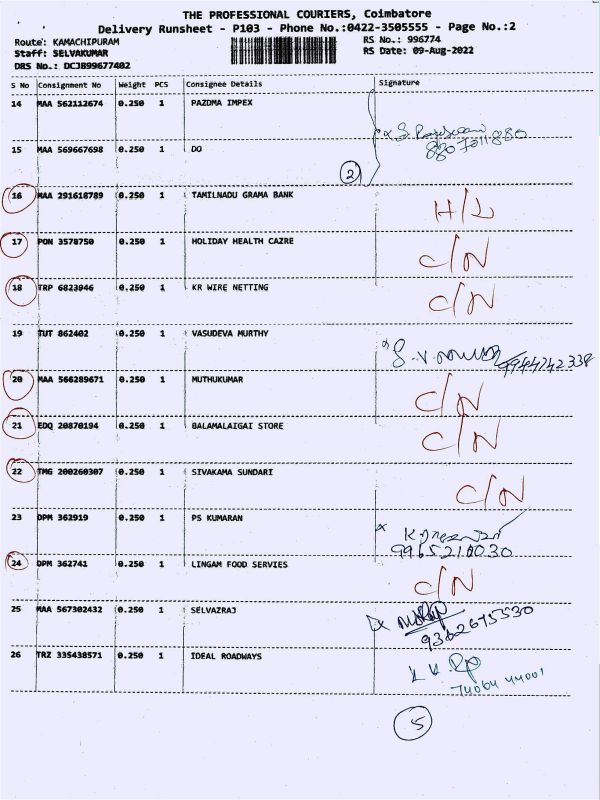 THE PROFESSIONAL COURIERS, Coimbatore
Delivery Runsheet - P103 - Phone No.:0422-3505555 - Page No.:2
Route: KAMACHIPURAM RS No.: 996774
Staff: SELVAKUMAR RS Date: 09-Aug-2022
DRS No.: DCJB99677402
S No Consignment No Weight PCS Consignee Details Signature
14 MAA 562112674 0.250 1 PAZDMA IMPEX
8807011880
15 MAA 569667698 0.250 1 DO
2
16 MAA 291618789 0.250 1 TAMILNADU GRAMA BANK H/L
17 PON 3578750 0.250 1 HOLIDAY HEALTH CAZRE C/N
18 TRP 6823946 0.250 1 KR WIRE NETTING C/N
19 TUT 862402 0.250 1 VASUDEVA MURTHY
9944742338
20 MAA 566289671 0.250 1 MUTHUKUMAR C/N
21 EDQ 20870194 0.250 1 BALAMALAIGAI STORE C/N
22 TMG 200260307 0.250 1 SIVAKAMA SUNDARI C/N
23 DPM 362919 0.250 1 PS KUMARAN
9965210030
24 DPM 362741 0.250 1 LINGAM FOOD SERVIES C/N
25 MAA 567302432 0.250 1 SELVAZRAJ
9362675530
26 TRZ 335438571 0.250 1 IDEAL ROADWAYS
74064 44001
5